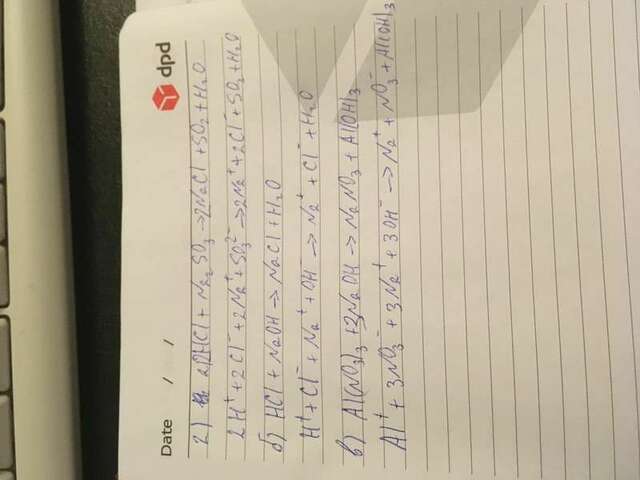 Date / /
dpd
2) a) 2HCl + Na₂SO₃ → 2NaCl + SO₂ + H₂O
2H⁺ + 2Cl⁻ + 2Na⁺ + SO₃²⁻ → 2Na⁺ + 2Cl⁻ + SO₂ + H₂O
б) HCl + NaOH → NaCl + H₂O
H⁺ + Cl⁻ + Na⁺ + OH⁻ → Na⁺ + Cl⁻ + H₂O
в) Al(NO₃)₃ + 3NaOH → NaNO₃ + Al(OH)₃
Al⁺ + 3NO₃⁻ + 3Na⁺ + 3OH⁻ → Na⁺ + NO₃⁻ + Al(OH)₃